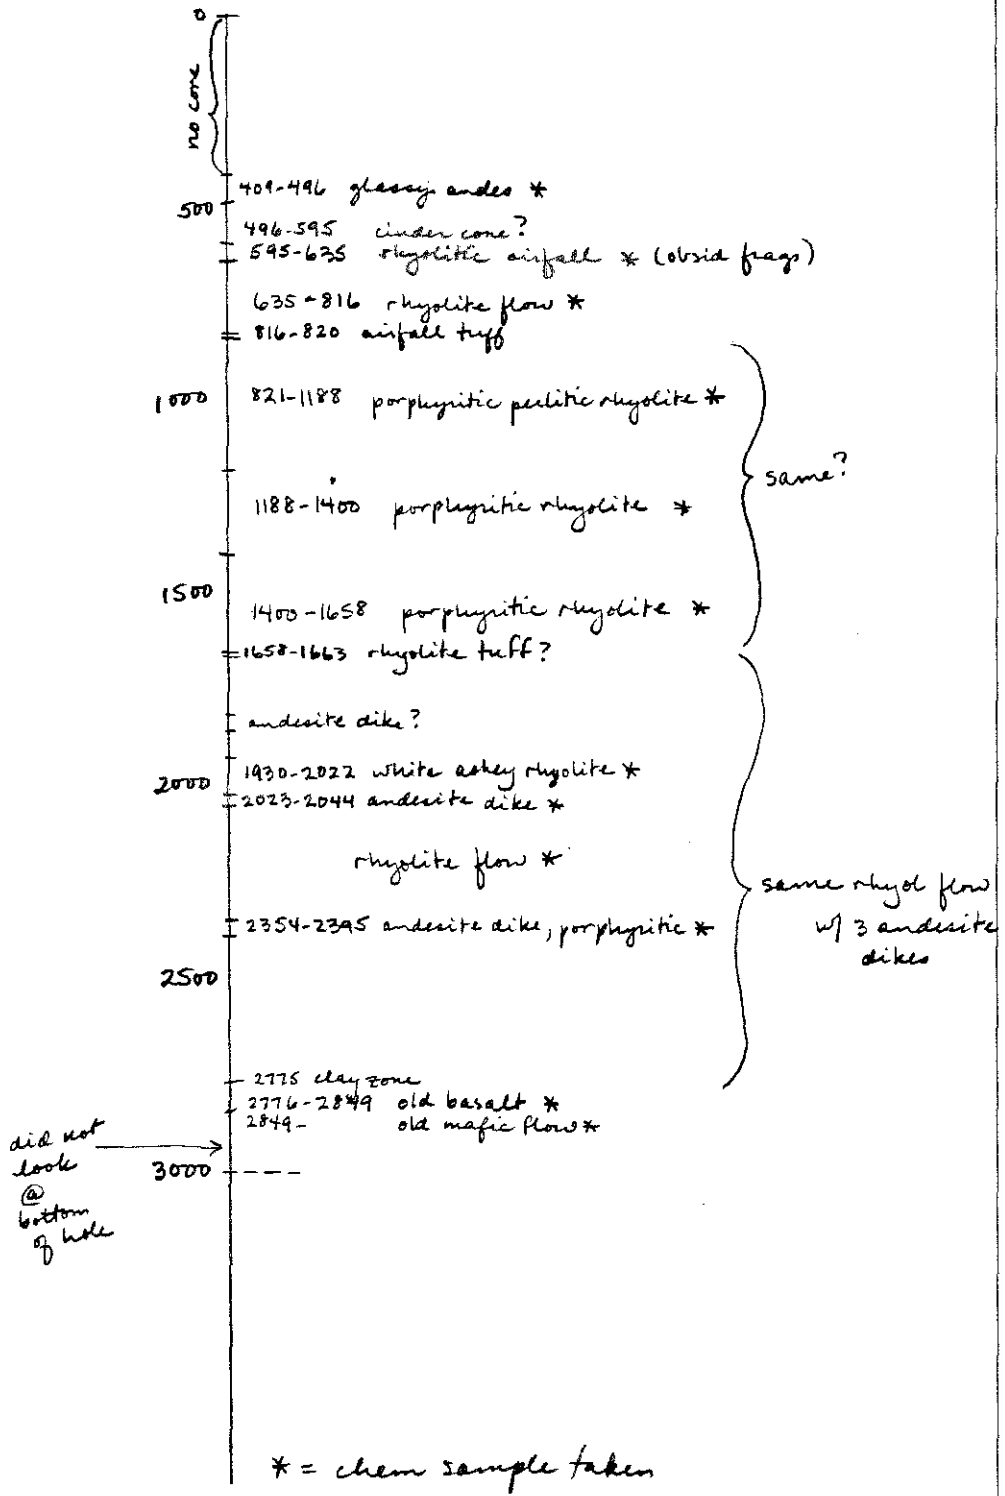 0
no core
409-496 glassy andes *
500
496-595 cinder cone?
595-635 rhyolitic airfall * (obsid frags)
635-816 rhyolite flow *
816-820 airfall tuff
1000
821-1188 porphyritic perlitic rhyolite *
same?
1188-1400 porphyritic rhyolite *
1500
1400-1658 porphyritic rhyolite *
1658-1663 rhyolite tuff?
andesite dike?
1930-2022 white ashey rhyolite *
2000
2023-2044 andesite dike *
rhyolite flow *
same rhyol flow
w/ 3 andesite
dikes
2354-2395 andesite dike, porphyritic *
2500
2775 clay zone
2776-2849 old basalt *
2849- old mafic flow *
did not
look
@
bottom
of hole
3000
* = chem sample taken